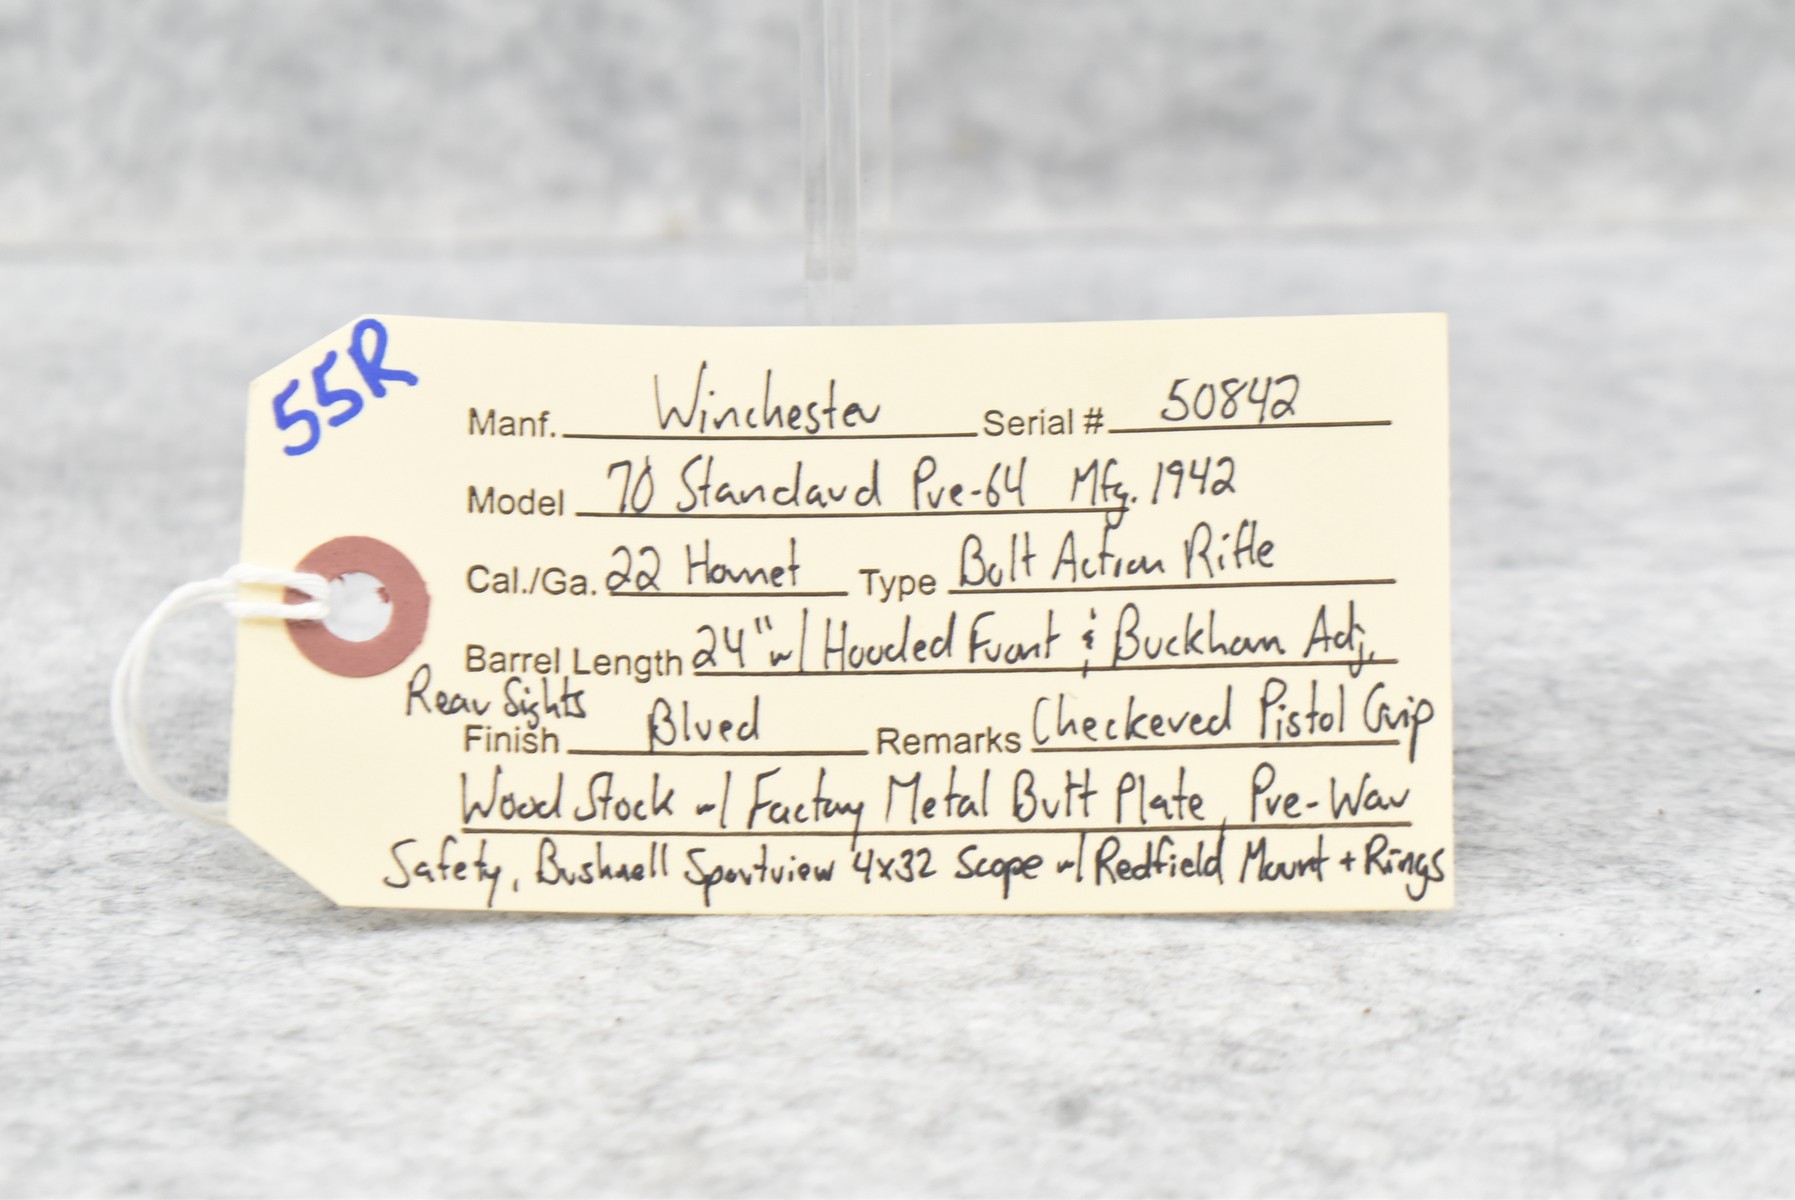 55R
Manf. Winchester Serial # 50842
Model 70 Standard Pre-64 Mfg. 1942
Cal./Ga. 22 Hornet Type Bolt Action Rifle
Barrel Length 24" w/ Hooded Front & Buckhorn Adj.
Rear Sights
Finish Blued Remarks Checkered Pistol Grip
Wood Stock w/ Factory Metal Butt Plate, Pre-War
Safety, Bushnell Sportview 4x32 Scope w/ Redfield Mount + Rings